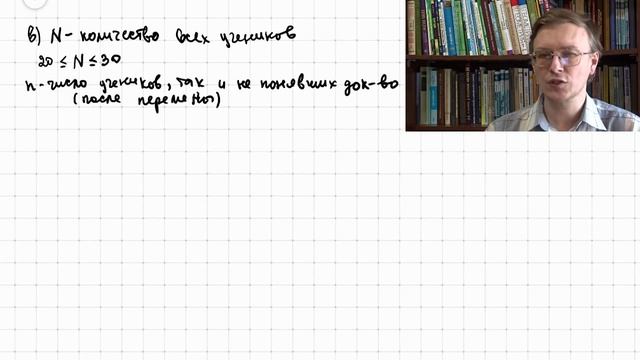 в) N - количество всех учеников
20 ≤ N ≤ 30
n - число учеников, так и не понявших док-во
(после перемены)